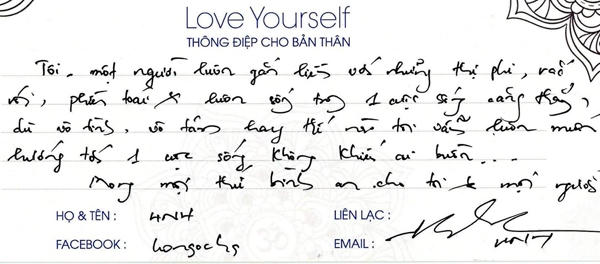 Love Yourself
THÔNG ĐIỆP CHO BẢN THÂN
Tôi, một người luôn gắn liền với những thị phi, rắc
rối, phiền toái & luôn sống trong 1 cuộc sống căng thẳng,
dù vô tình, vô tâm hay thế nào tôi vẫn luôn muốn
hướng tới 1 cuộc sống không khiến ai buồn...
Mong mọi thứ bình an cho tôi & mọi người
HỌ & TÊN : LIÊN LẠC :
FACEBOOK : EMAIL :